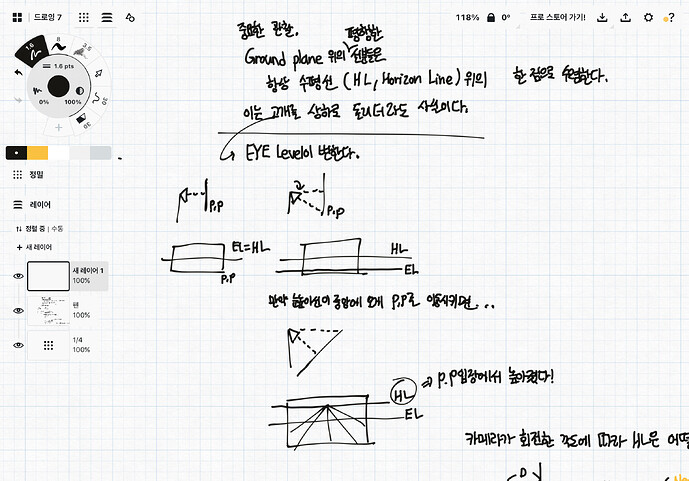 드로잉 7
118%
0°
프로 스토어 가기!
8
1.6
3.5
1.6 pts
0%
100%
30
30
정밀
레이어
정렬 중 | 수동
+ 새 레이어
새 레이어 1
100%
펜
100%
1/4
100%
중요한 관찰.
평행한
Ground plane 위의 선들은
항상 수평선 (HL, Horizon Line) 위의 한 점으로 수렴한다.
이는 고개를 상하로 돌리더라도 사실이다.
EYE Level이 변한다.
P.P
P.P
EL=HL
P.P
HL
EL
만약 높아선이 중앙에 오게 P.P로 이동시키면...
HL
⇒ P.P입장에서 높아졌다!
EL
카메라가 회전한 각도에 따라 HL은 어떻
D